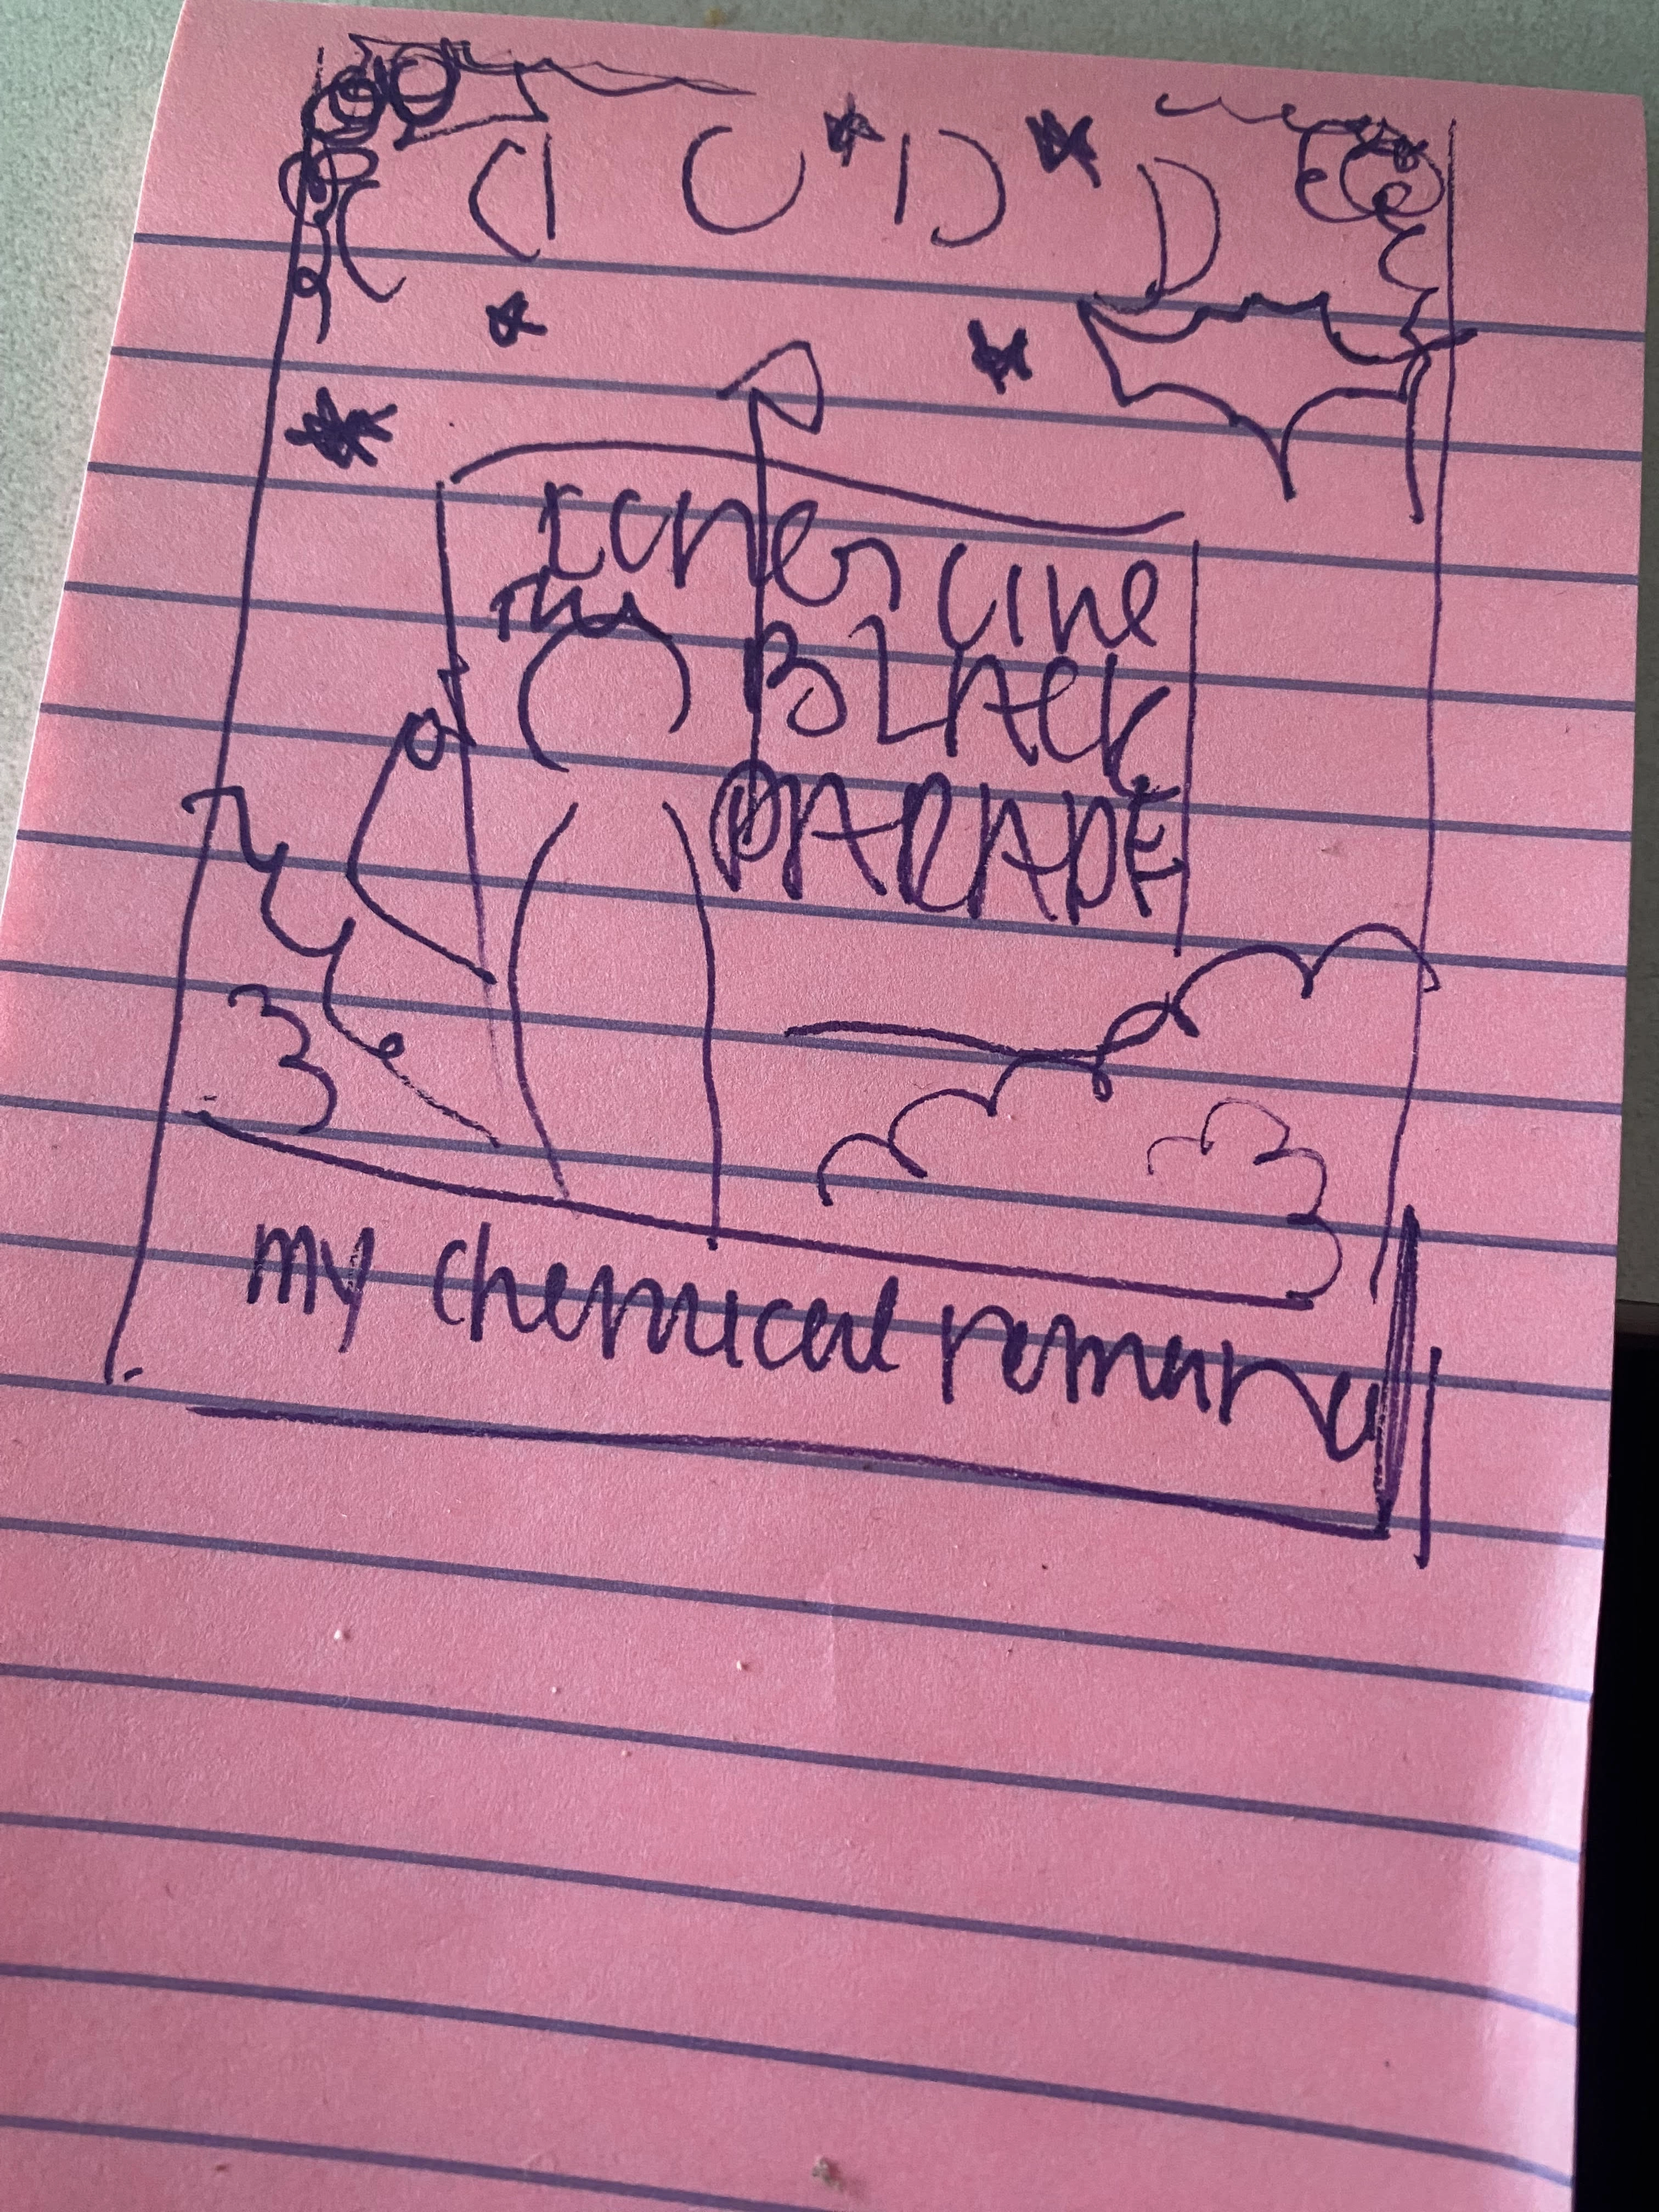 The
BLACK
PARADE
my chemical romance